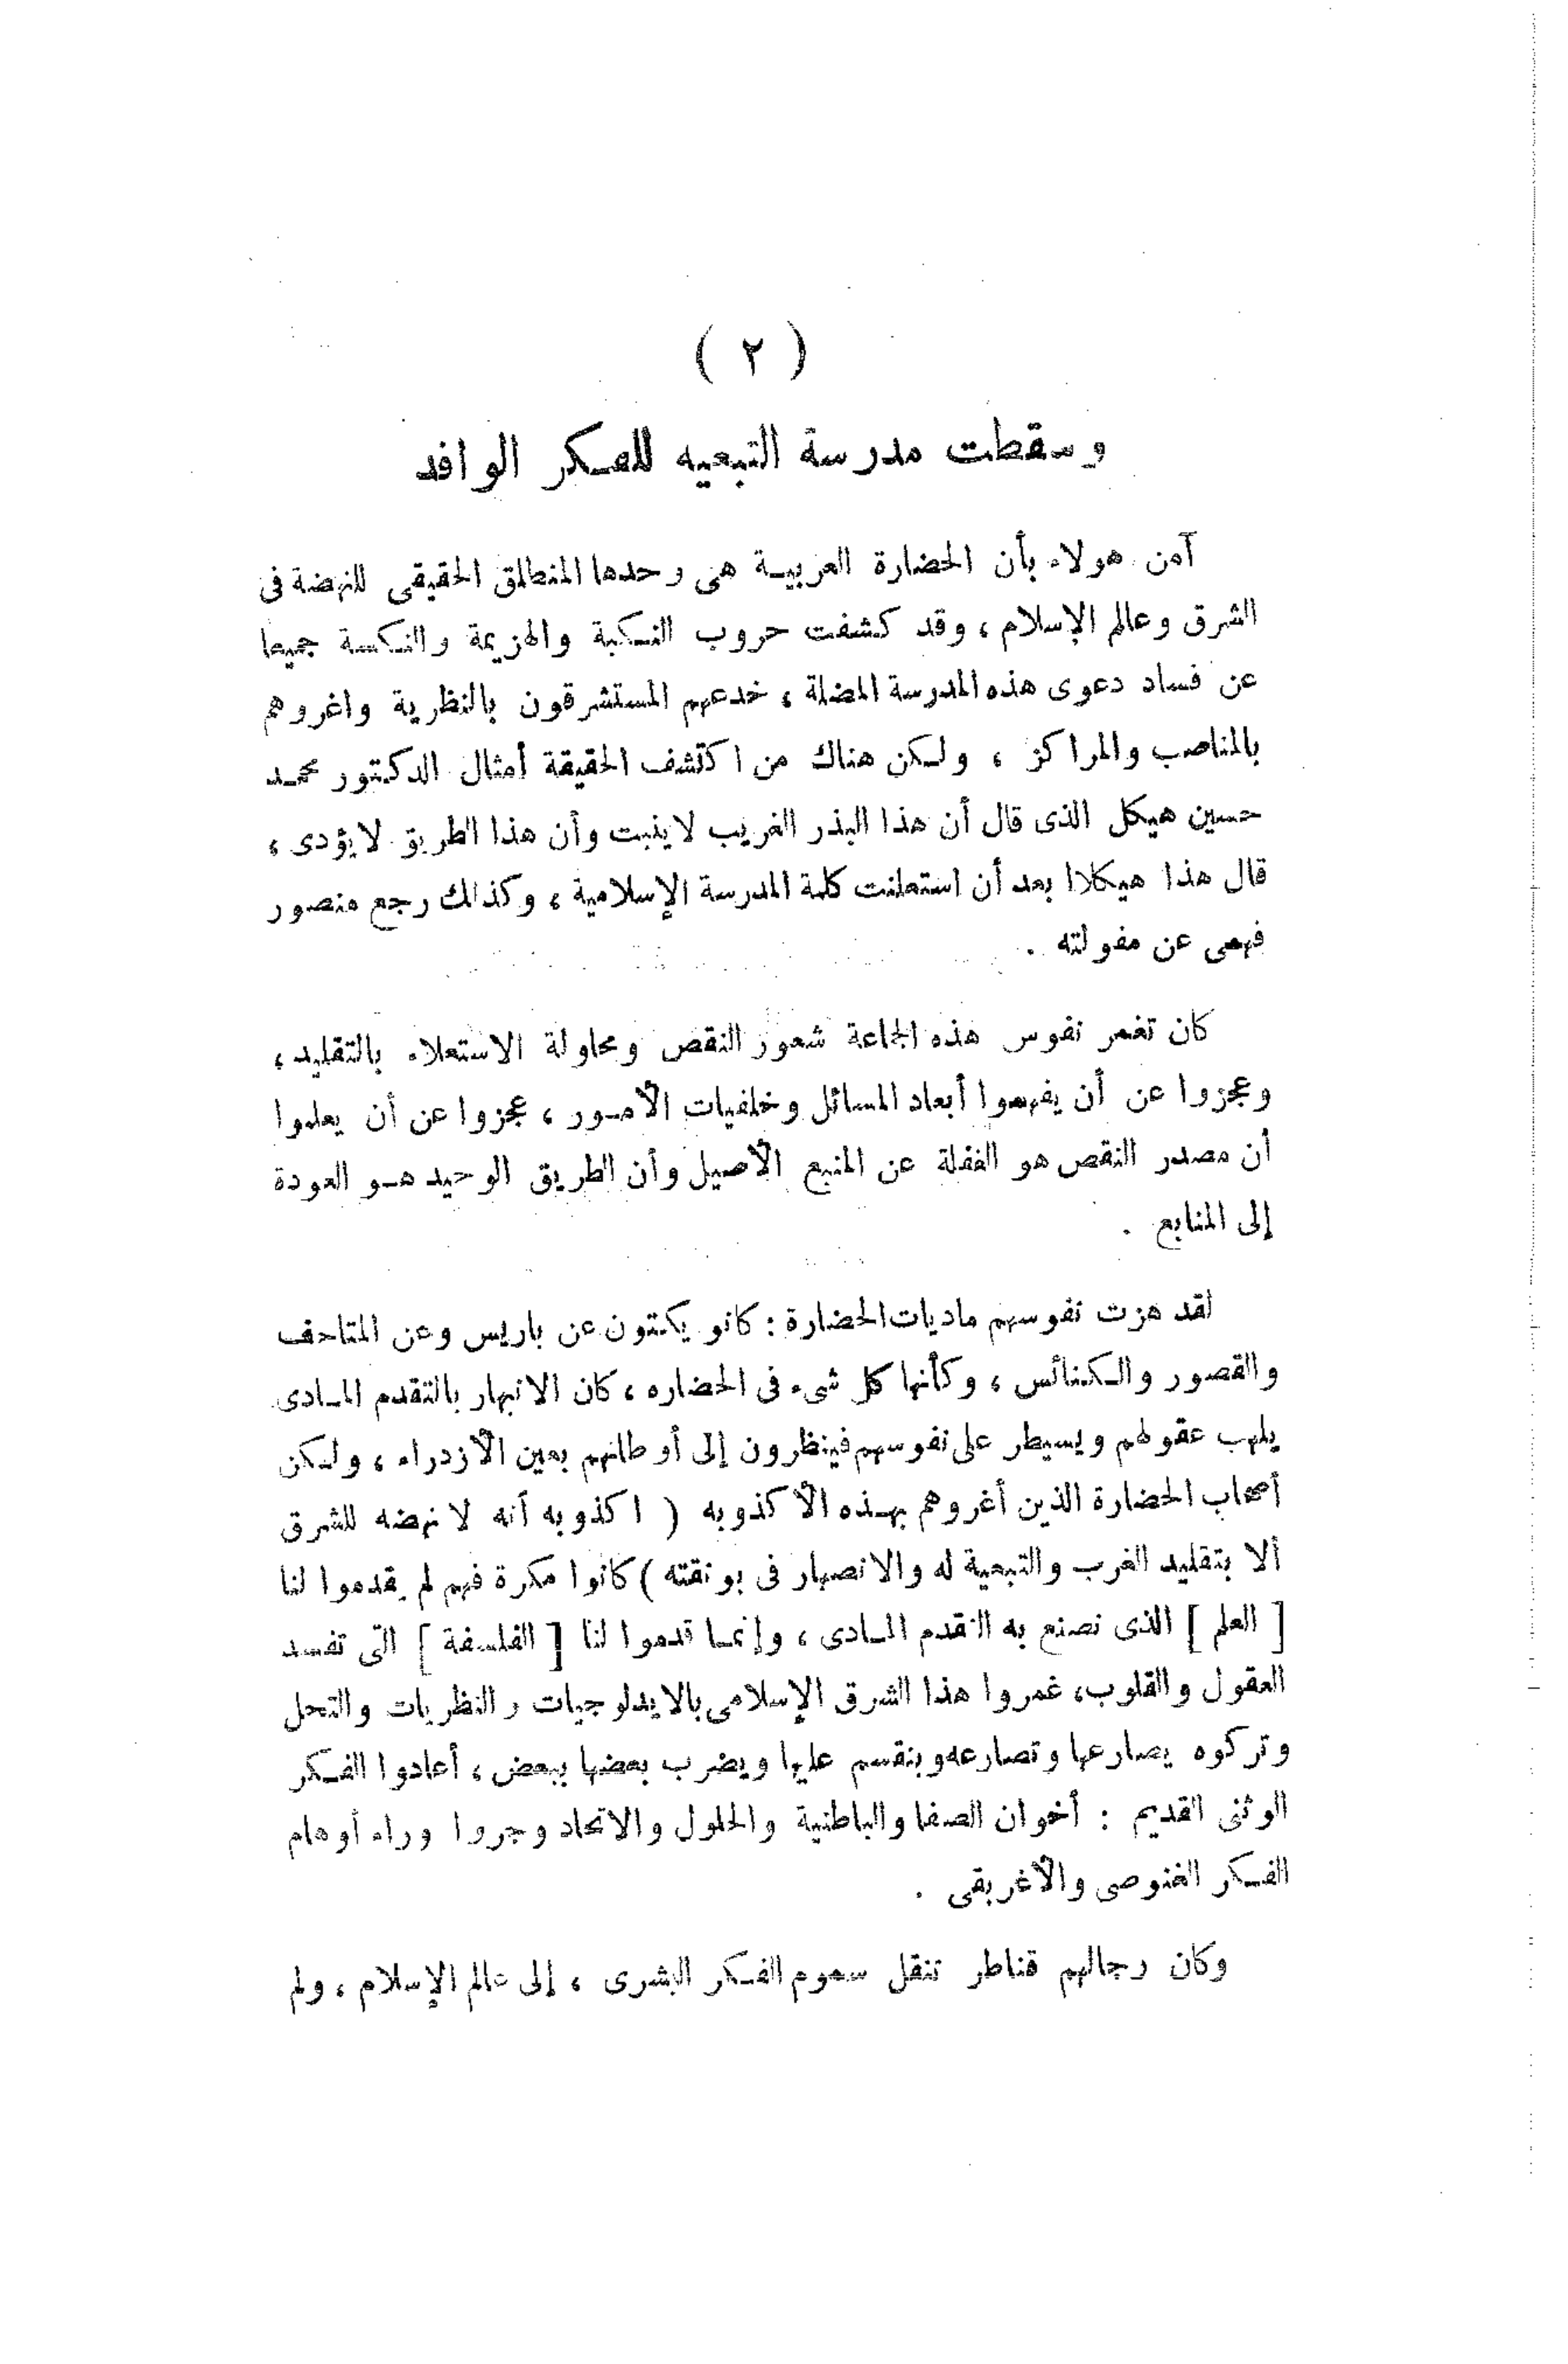 ( ٢ )
وسقطت مدرسة التبعيه للفكر الوافد
آمن هولاء بأن الحضارة العربية هى وحدها المنطلق الحقيقى للنهضة فى
الشرق وعالم الإسلام ، وقد كشفت حروب النكبة والهزيمة والنكسة جميعا
عن فساد دعوى هذه المدرسة المضلة ، خدعهم المستشرقون بالنظرية واغروهم
بالمناصب والمراكز ، ولكن هناك من اكتشف الحقيقة أمثال الدكتور محمد
حسين هيكل الذى قال أن هذا البذر الغريب لاينبت وأن هذا الطريق لايؤدى ،
قال هذا هيكلاا بعد أن استعلنت كلمة المدرسة الإسلامية ، وكذلك رجع منصور
فهمى عن مقولته .
كان تغمر نفوس هذه الجماعة شعور النقص ومحاولة الاستعلاء بالتقليد ،
وعجزوا عن أن يفهموا أبعاد المسائل وخلفيات الأمور ، عجزوا عن أن يعلموا
أن مصدر النقص هو الغفلة عن المنبع الأصيل وأن الطريق الوحيد هو العودة
إلى المنابع .
لقد هزت نفوسهم ماديات الحضارة : كانو يكتون عن باريس وعن المتاحف
والقصور والكنائس ، وكأنها كل شىء فى الحضاره ، كان الانبهار بالتقدم المادى
يلهب عقولهم ويسيطر على نفوسهم فينظرون إلى أوطانهم بعين الأزدراء ، ولكن
أصحاب الحضارة الذين أغروهم بهذه الأكذوبه ( اكذوبه أنه لا نهضه للشرق
ألا بتقليد الغرب والتبعية له والانصهار فى بونقته ) كانوا مكرة فهم لم يقدموا لنا
[ العلم ] الذى نصنع به التقدم المادى ، وإنما قدموا لنا [ الفلسفة ] التى تفسد
العقول والقلوب، غمروا هذا الشرق الإسلامى بالايدلوجيات والنظريات والنحل
وتركوه يصارعها وتصارعه وينقسم عليها ويضرب بعضها ببعض ، أعادوا الفكر
الوثنى القديم : أخوان الصفا والباطنية والحلول والاتحاد وجروا وراء أوهام
الفكر الغنوصى والأغريقى .
وكان رجالهم قناطر تنقل سموم الفكر البشرى ، إلى عالم الإسلام ، ولم